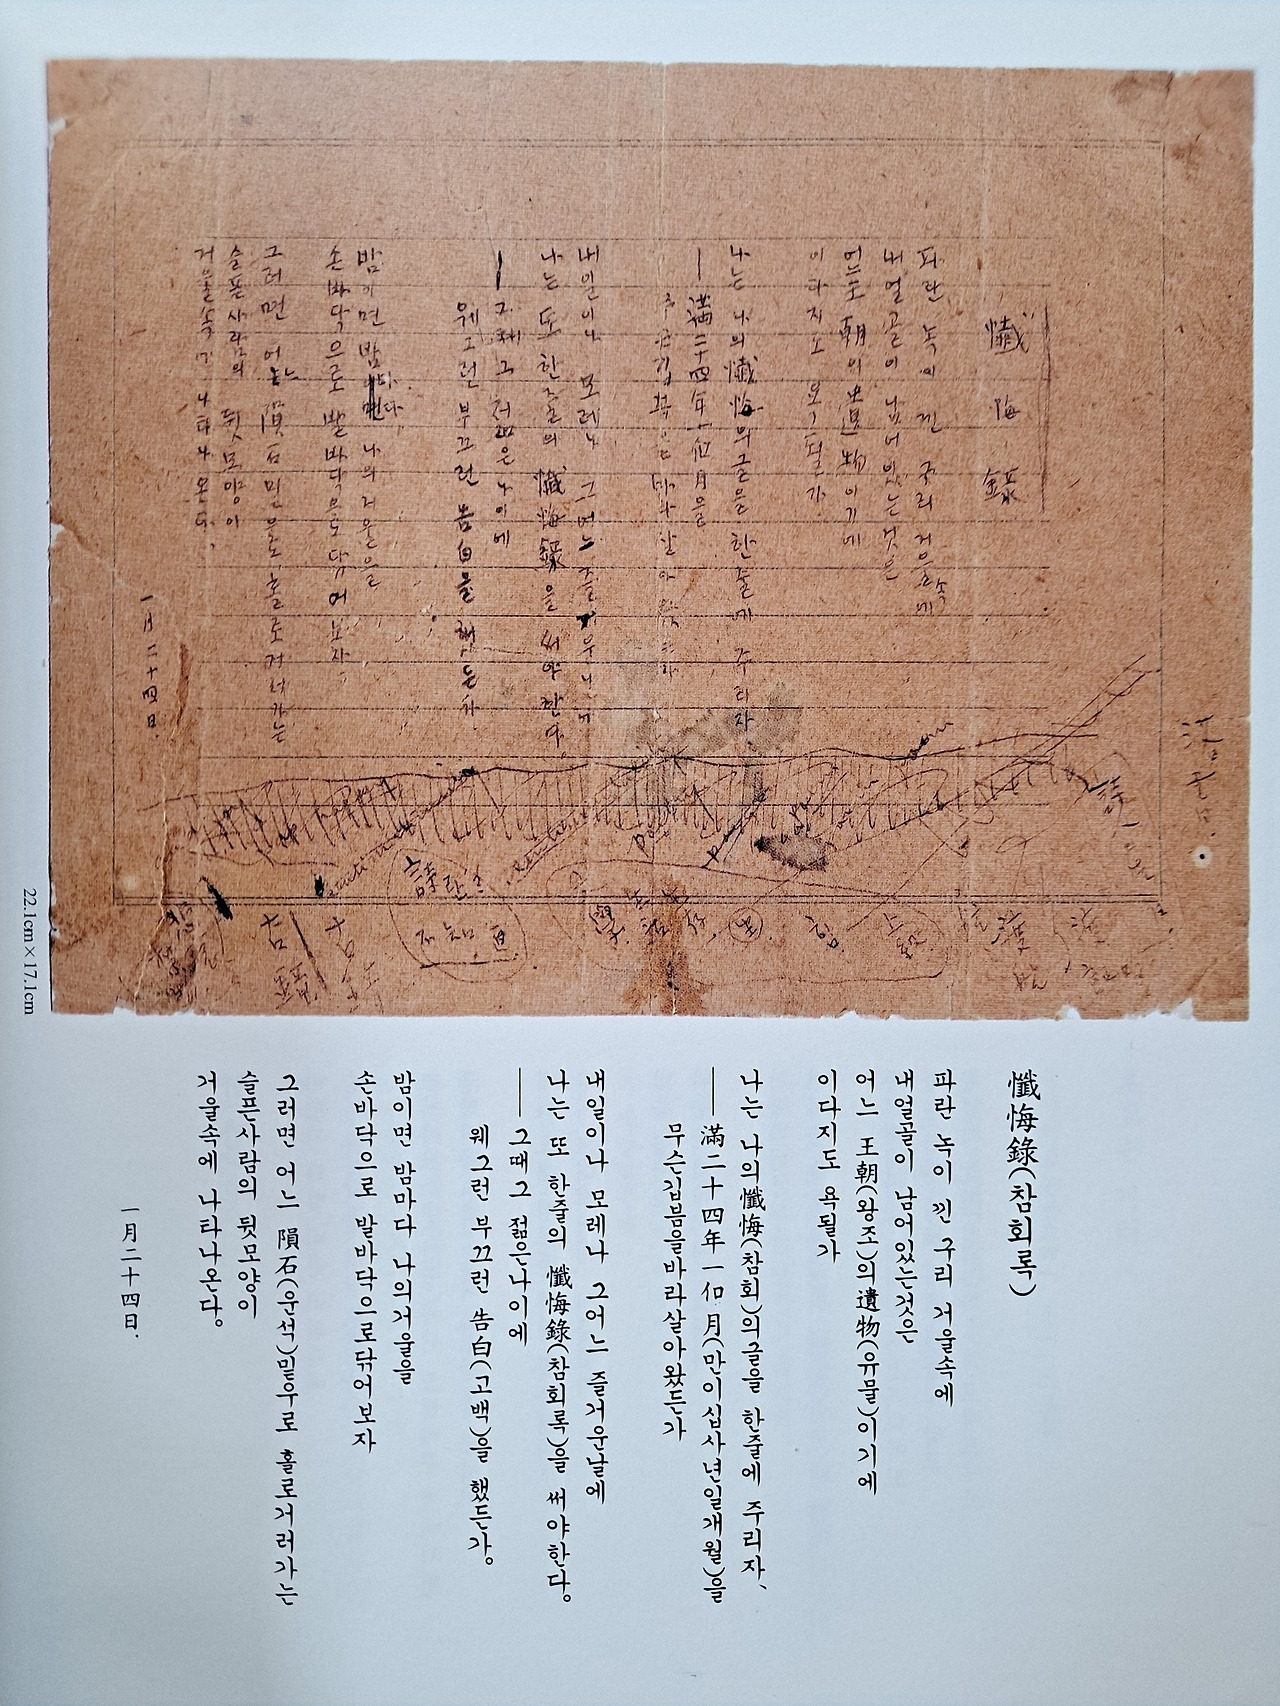 懺悔錄
파란 녹이 낀 구리 거울속에
내얼골이 남어있는것은
어느 王朝의遺物이기에
이다지도 욕될가
나는 나의懺悔의글을 한줄에 주리자
― 滿二十四年一個月을
무슨깁븜을 바라 살아왔든가
내일이나 모레나 그어느 즐거운날에
나는 또 한줄의 懺悔錄을 써야한다。
― 그때그 젊은나이에
웨그런 부끄런 告白을 했든가
밤이면 밤마다 나의거울을
손바닥으로 발바닥으로닦어보자
그러면 어느 隕石밑우로 홀로거러가는
슬픈사람의 뒷모양이
거울속에 나타나온다。
一月二十四日.
詩란?
不知道
生
힘
22.1cm×17.1cm
懺悔錄(참회록)
파란 녹이 낀 구리 거울속에
내얼골이 남어있는것은
어느 王朝(왕조)의遺物(유물)이기에
이다지도 욕될가
나는 나의懺悔(참회)의글을 한줄에 주리자、
― 滿二十四年一個月(만이십사년일개월)을
무슨깁븜을바라살아왔든가
내일이나 모레나 그어느 즐거운날에
나는 또 한줄의 懺悔錄(참회록)을 써야한다。
― 그때그 젊은나이에
웨그런 부끄런 告白(고백)을 했든가。
밤이면 밤마다 나의거울을
손바닥으로 발바닥으로닦어보자
그러면 어느 隕石(운석)밑우로 홀로거러가는
슬픈사람의 뒷모양이
거울속에 나타나온다。
一月二十四日.